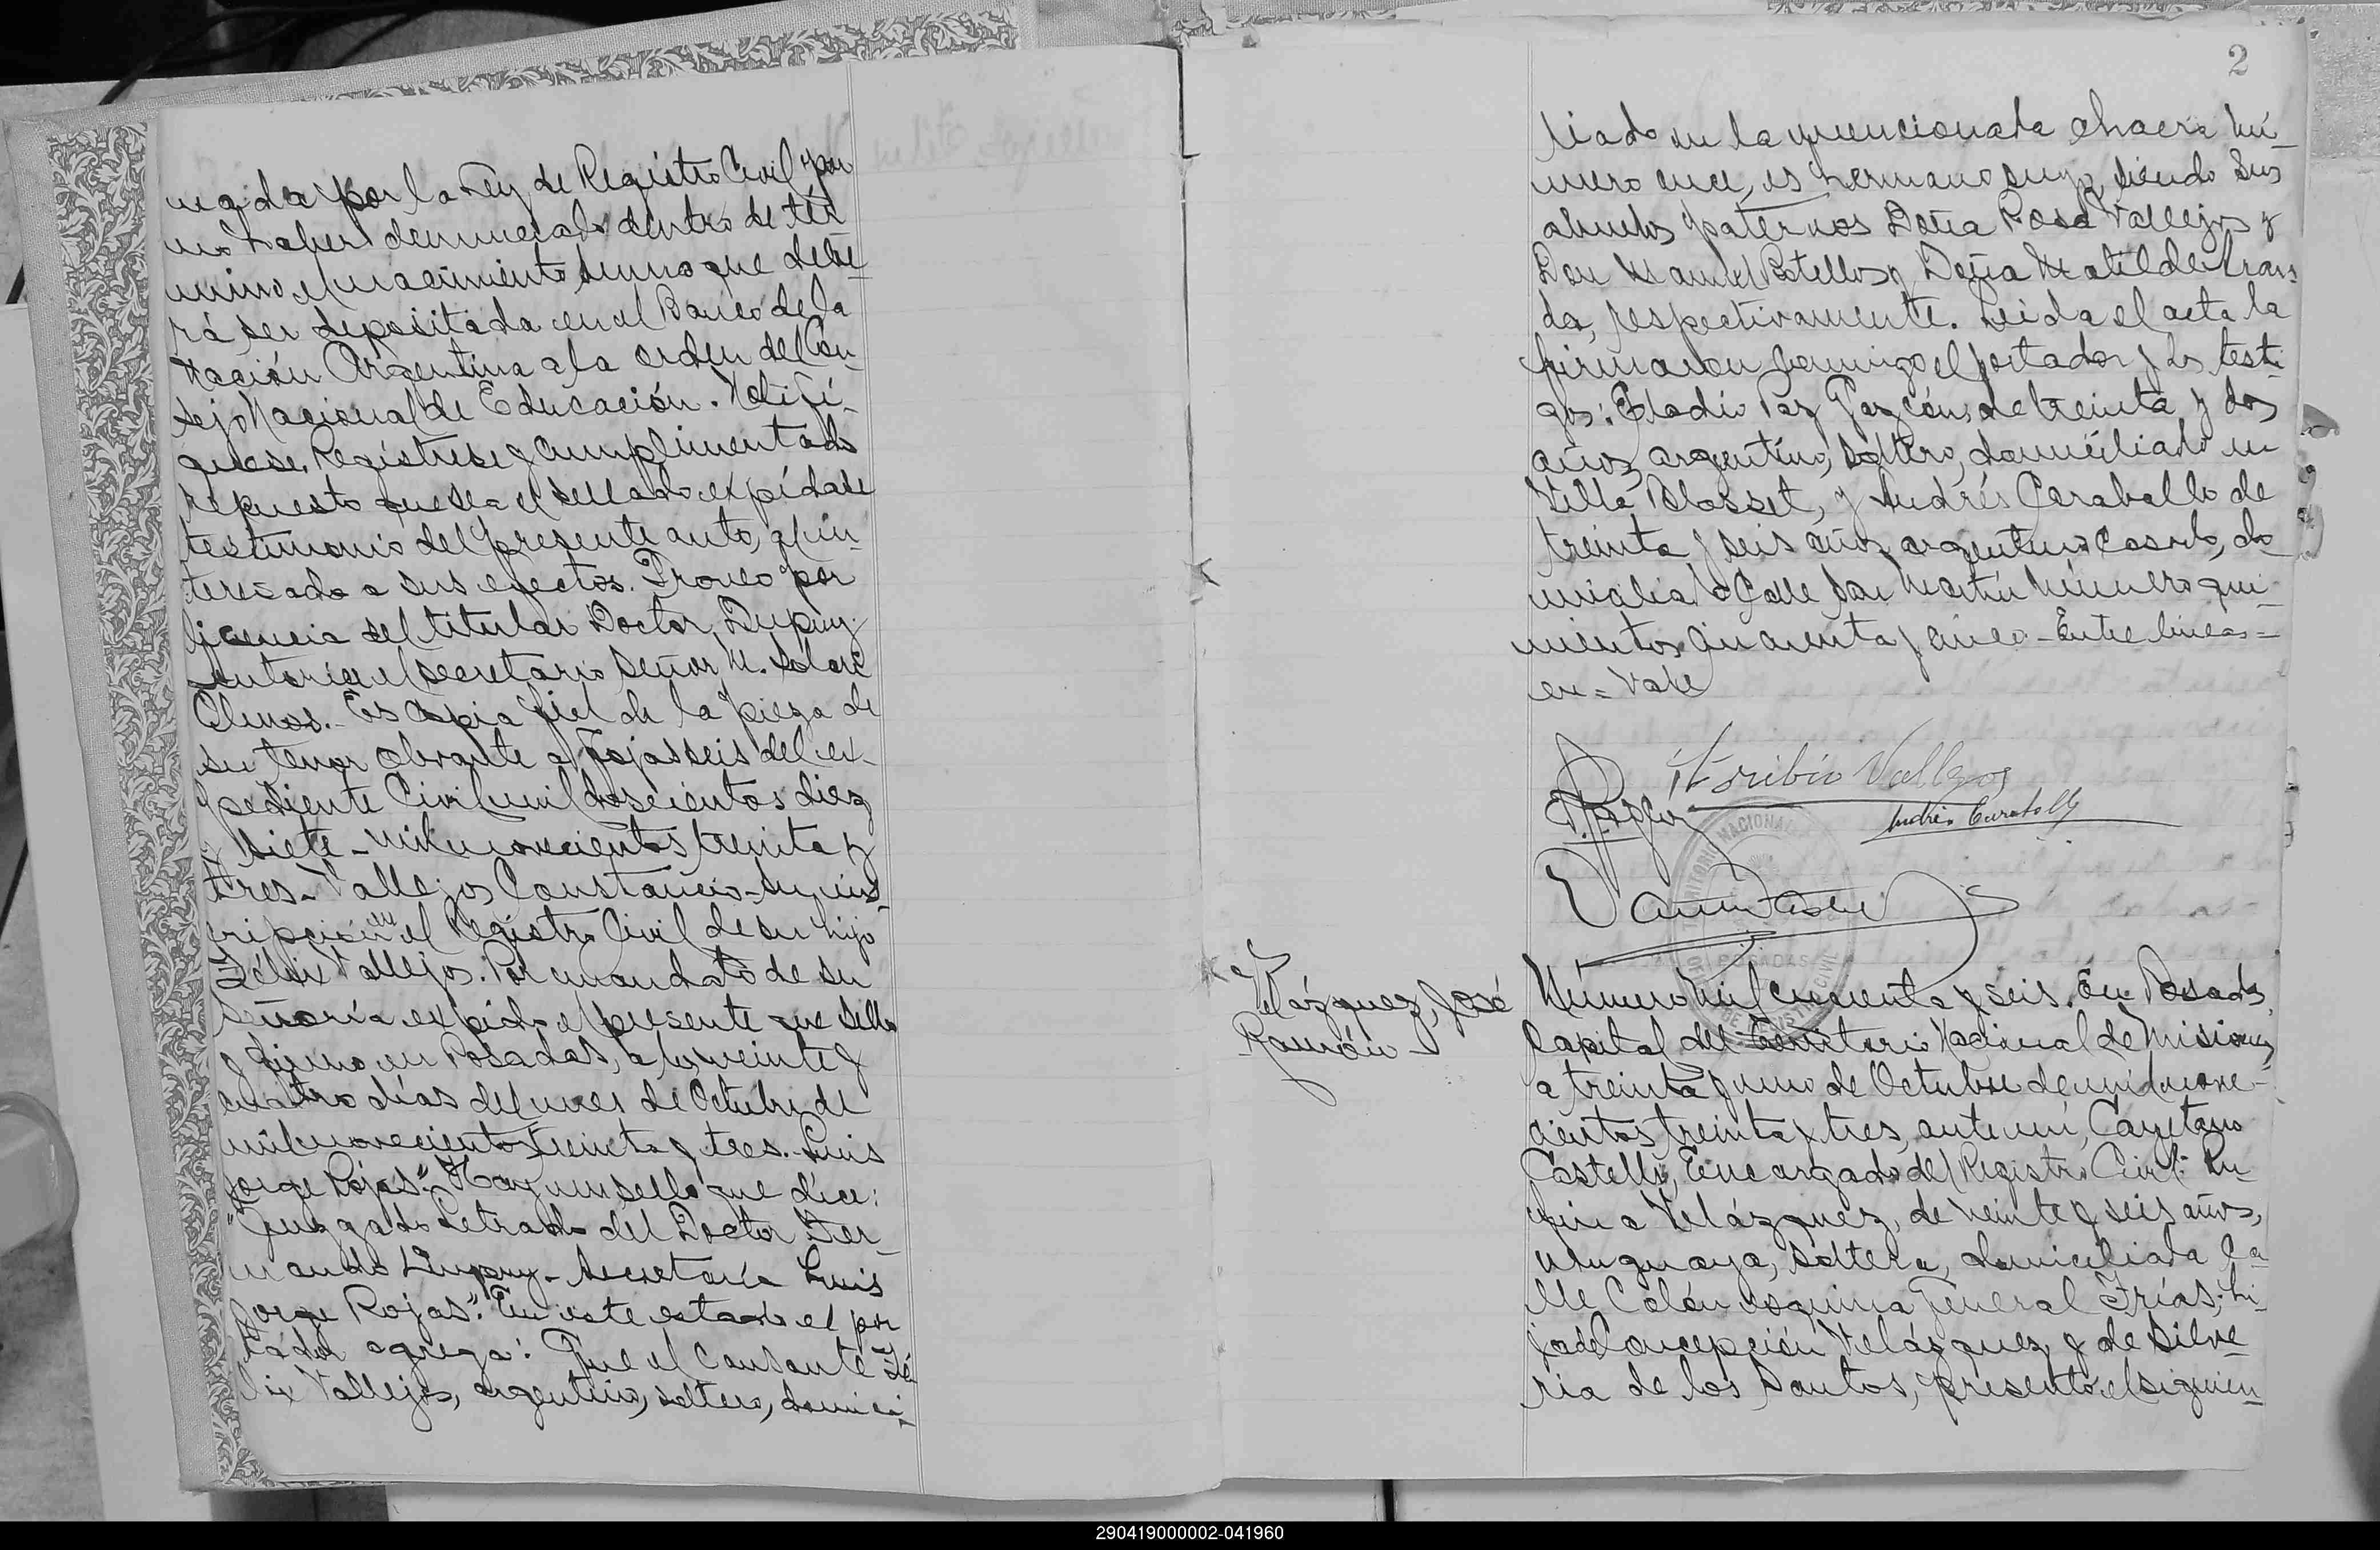 nada por la Ley de Registro Civil por
no haber denunciado dentro de tér-
mino el nacimiento, suma que debe-
rá ser depositada en el Banco de la
Nación Argentina a la orden del Con-
sejo Nacional de Educación. Notifí-
quese. Regístrese y cumplimentado
repuesto que sea el sellado expídase
testimonio del presente auto, al in-
teresado a sus efectos. Proveo por
licencia del titular Doctor Dupuy
autorice el secretario Señor M. Solari
Olmos. Es copia fiel de la pieza de
su tenor obrante a fojas seis del ex-
pediente Civil mil doscientos diez
y siete - mil novecientos treinta y
tres - Vallejos Constancio - su ins-
cripción en el Registro Civil de su hijo
Félix Vallejos. Por mandato de su
Señoría expido el presente que sello
y firmo en Posadas, a los veinte y
cuatro días del mes de Octubre de
mil novecientos treinta y tres. - Luis
Jorge Rojas". Hay un sello que dice:
"Juzgado Letrado del Doctor Fer-
nando Dupuy - Secretaría Luis
Jorge Rojas". En este estado el por-
tador agrega: Que el causante Fé-
lix Vallejos, argentino, soltero, domici-
2
liado en la mencionada chacra nú-
mero once, es hermano suyo, siendo sus
abuelos paternos Doña Rosa Vallejos y
Don Manuel Botello y Doña Matilde
da, respectivamente. Leida el acta la
firmaron conmigo el portador y los testi-
gos: Eladio Paz Garzón, de treinta y dos
años, argentino, soltero, domiciliado en
Villa Blosset, y Andrés Caraballo de
treinta y seis años, argentino, casado, do-
miciliado Calle San Martín número qui-
nientos cincuenta y cinco - Entre líneas =
en = Vale
Toribio Vallejos
Andrés Caraballo
TERRITORIO NACIONAL
POSADAS
REGISTRO CIVIL
Velázquez, José
Ramón -
Número mil cincuenta y seis. En Posadas,
Capital del Territorio Nacional de Misiones,
a treinta y uno de Octubre de mil nove-
cientos treinta y tres, ante mí, Cayetano
Castelli, Encargado del Registro Civil: Ru-
fina Velázquez, de veinte y seis años,
uruguaya, soltera, domiciliada Ca-
lle Colón esquina General Frías; hi-
ja de Concepción Velázquez y de Silve-
ria de los Santos, presentó el siguien-
290419000002-041960